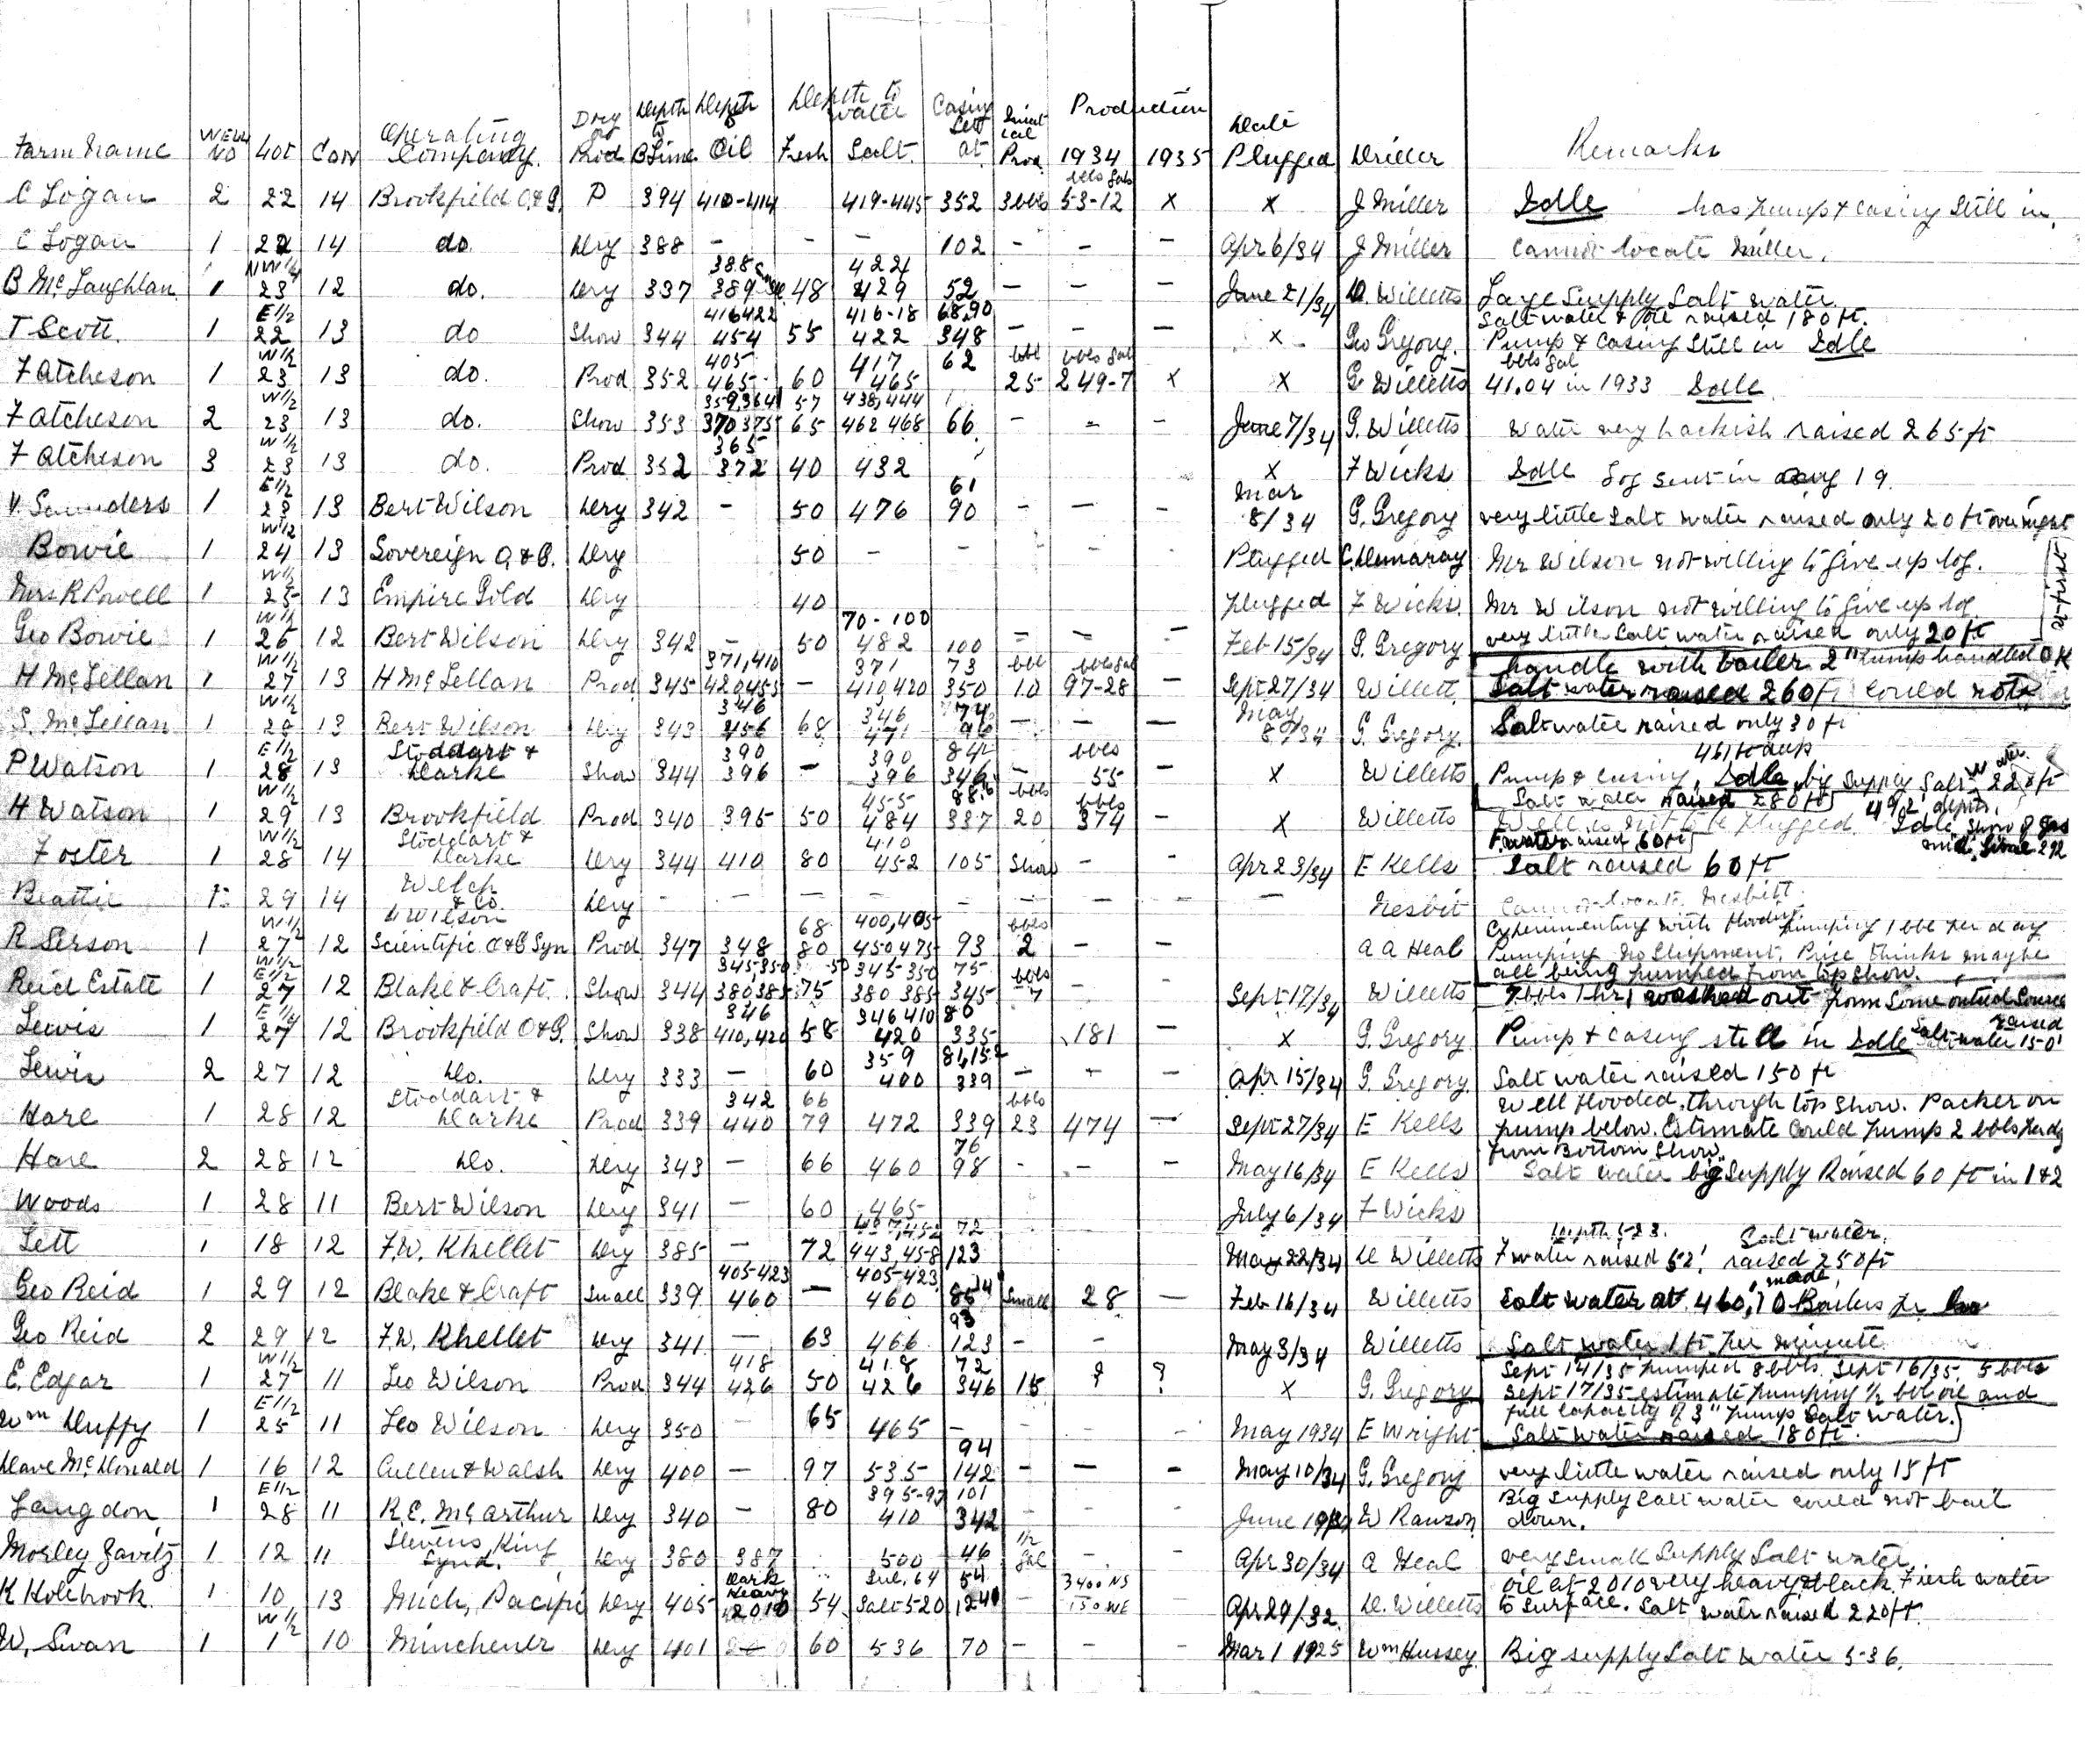 Farm Name WELL NO Lot Con Operating Company Dry or Prod Depth to B Lime Depth to Oil Depth to water Fresh Salt Casing Set at Initial Prod Production 1934 1935 Date Plugged Driller Remarks
bbls gals
C Logan 2 22 14 Brookfield O.&G. P 394 410-414 419-445 352 3bbls 53-12 x x J Miller Idle has pump & casing still in.
C Logan 1 22 14 do. Dry 388 - - - 102 - - - Apr 6/34 J Miller Cannot locate Miller.
NW 1/4 388 422
B McLaughlan 1 23 12 do. Dry 337 389 48 429 52 - - - June 21/34 D. Willetts Large Supply Salt water
E 1/2 416 422 416-18 68,90 Salt water & Oil raised 180 ft.
T Scott. 1 22 13 do Show 344 454 55 422 348 - - - x Geo Gregory. Pump & Casing Still in Idle
W 1/2 405 417 62 bbl bbls gal bbls gal
F Atcheson 1 23 13 do. Prod 352 465 60 465 25 249-7 x x G Willetts 41.04 in 1933 Idle
W 1/2 359,364 57 438,444
F Atcheson 2 23 13 do. Show 353 370 375 65 462 468 66 - - - June 7/34 G. Willetts Water very brackish raised 265 ft
W 1/2 365
F Atcheson 3 23 13 do. Prod 352 372 40 432 x F Wicks Idle Log sent in Aug 19.
E 1/2 61 Mar
V. Saunders 1 23 13 Bert Wilson Dry 342 - 50 476 90 - - - 8/34 G. Gregory very little Salt water raised only 20 ft overnight
W 1/2
Bowie 1 24 13 Sovereign O.&G. Dry 50 - - - - - Plugged C. Demaray Mr Wilson not willing to give up log.
W 1/2
Mrs R Powell 1 25 13 Empire Gold Dry 40 plugged F Wicks. Mr Wilson not willing to give up log
W 1/2 70-100 very little Salt water raised only 20 ft
Geo Bowie 1 26 12 Bert Wilson Dry 342 - 50 482 100 - - - Feb 15/34 G. Gregory
W 1/2 371,410 371 73 bbl bbls gal handle with bailer 2" pump handled OK
H McLellan 1 27 13 H McLellan Prod 345 420 455 - 410 420 350 10 97-28 - Sept 27/34 Willett. Salt water raised 260 ft could not
W 1/2 346 346 74 May
S. McLellan 1 28 13 Bert Wilson Dry 343 456 68 471 96 - - - 8/34 G. Gregory. Salt water raised only 30 ft
E 1/2 Stoddart & 390 390 84 bbls 461 to deep
P Watson 1 28 13 Clarke Show 344 396 - 396 346 - 55 x Willetts Pump & casing, Idle, big supply Salt Water 220 ft
W 1/2 455 88.6 bbls bbls Salt water raised 280 ft 492' depth.
H Watson 1 29 13 Brookfield Prod 340 395 50 484 337 20 374 - x Willetts Well is not to be plugged Idle Show of gas
W 1/2 Stoddart & 410 F. water raised 60 ft
Foster 1 28 14 Clarke Dry 344 410 80 452 105 Show - - Apr 23/34 E Kells Salt raised 60 ft
Welch
Beattie 1 29 14 & Co. Dry - - - - - - - - - Nesbit Cannot locate Nesbitt.
W 1/2 Wilson 68 400,405 bbls Experimenting with flooding. Pumping 1 bbl per day
R Serson 1 27 12 Scientific O&G Syn Prod 347 348 80 450 475 93 2 - - A A Heal Pumping no Shipment. Price thinks maybe
E 1/2 345-350 50 345-350 75 bbls all being pumped from top show.
Reid Estate 1 27 12 Blake & Craft. Show 344 380 385 75 380 385 345 7 Sept 17/34 Willetts 7 bbls 1 hr, washed out from some outside Source
E 1/4 346 346 410 80
Lewis 1 27 12 Brookfield O&G. Show 338 410,420 58 420 335 181 x G. Gregory Pump & Casing still in Idle Salt water raised 150'
359 81,152
Lewis 2 27 12 Do. Dry 333 - 60 400 339 - - - Apr 15/34 G. Gregory Salt water raised 150 ft
Stoddart & 342 66 bbls Well flooded through top Show. Packer on
Hare 1 28 12 Clarke Prod 339 440 79 472 339 23 474 - Sept 27/34 E Kells pump below. Estimate Could pump 2 bbls per dy
76 from Bottom Show.
Hare 2 28 12 Do. Dry 343 - 66 460 98 - - - May 16/34 E Kells Salt water big Supply Raised 60 ft in 1&2
Woods 1 28 11 Bert Wilson Dry 341 - 60 465 July 6/34 F Wicks
72 Depth 523. Salt water.
Lett 1 18 12 F.W. Khellet Dry 385 - 72 443,458 123 May 22/34 D. Willetts F water raised 52'. raised 250 ft
405-423 405-423 made
Geo Reid 1 29 12 Blake & Craft Small 339 460 - 460 Small 28 - Feb 16/34 Willetts Salt water at 460, 10 Bailers per
93
Geo Reid 2 29 12 F.W. Khellet Dry 341 - 63 466 123 - - May 3/34 Willetts Salt water 1 ft. per minute
W 1/2 418 418 72 Sept 14/35 pumped 8 bbls. Sept 16/35. 5 bbls
E. Edgar 1 27 11 Leo Wilson Prod 344 426 50 426 346 15 ? ? x G. Gregory Sept 17/35 estimate pumping 1/2 bbl oil and
E 1/2 full capacity of 3" pump Salt water.
Wm Duffy 1 25 11 Leo Wilson Dry 350 65 465 - - - - May 1934 E Wright Salt water raised 180 ft.
94
Dave McDonald 1 16 12 Cullen & Walsh Dry 400 - 97 535 142 - - - May 10/34 G. Gregory very little water raised only 15 ft
E 1/2 395-97 101 Big Supply Salt water could not bail
Langdon 1 28 11 R.E. McArthur Dry 340 - 80 410 342 - - June W Ranson down.
Stevens King 1/2
Morley Zavitz 1 12 11 Synd. Dry 380 387 500 46 gal - - Apr 30/34 A Heal very small Supply Salt water
Dark Heavy Sul. 64 54 3400 NS oil at 2010 very heavy & black Fresh water
K Holebrook 1 10 13 Mich, Pacific Dry 405 2010 54 Salt 520 1240 - 150 WE Apr 29/32. D. Willetts to surface. Salt water raised 220 ft.
W 1/2
W. Swan 1 1 10 Minchener Dry 401 60 536 70 - - - Mar 1 1925 Wm Hussey. Big supply Salt Water 536.